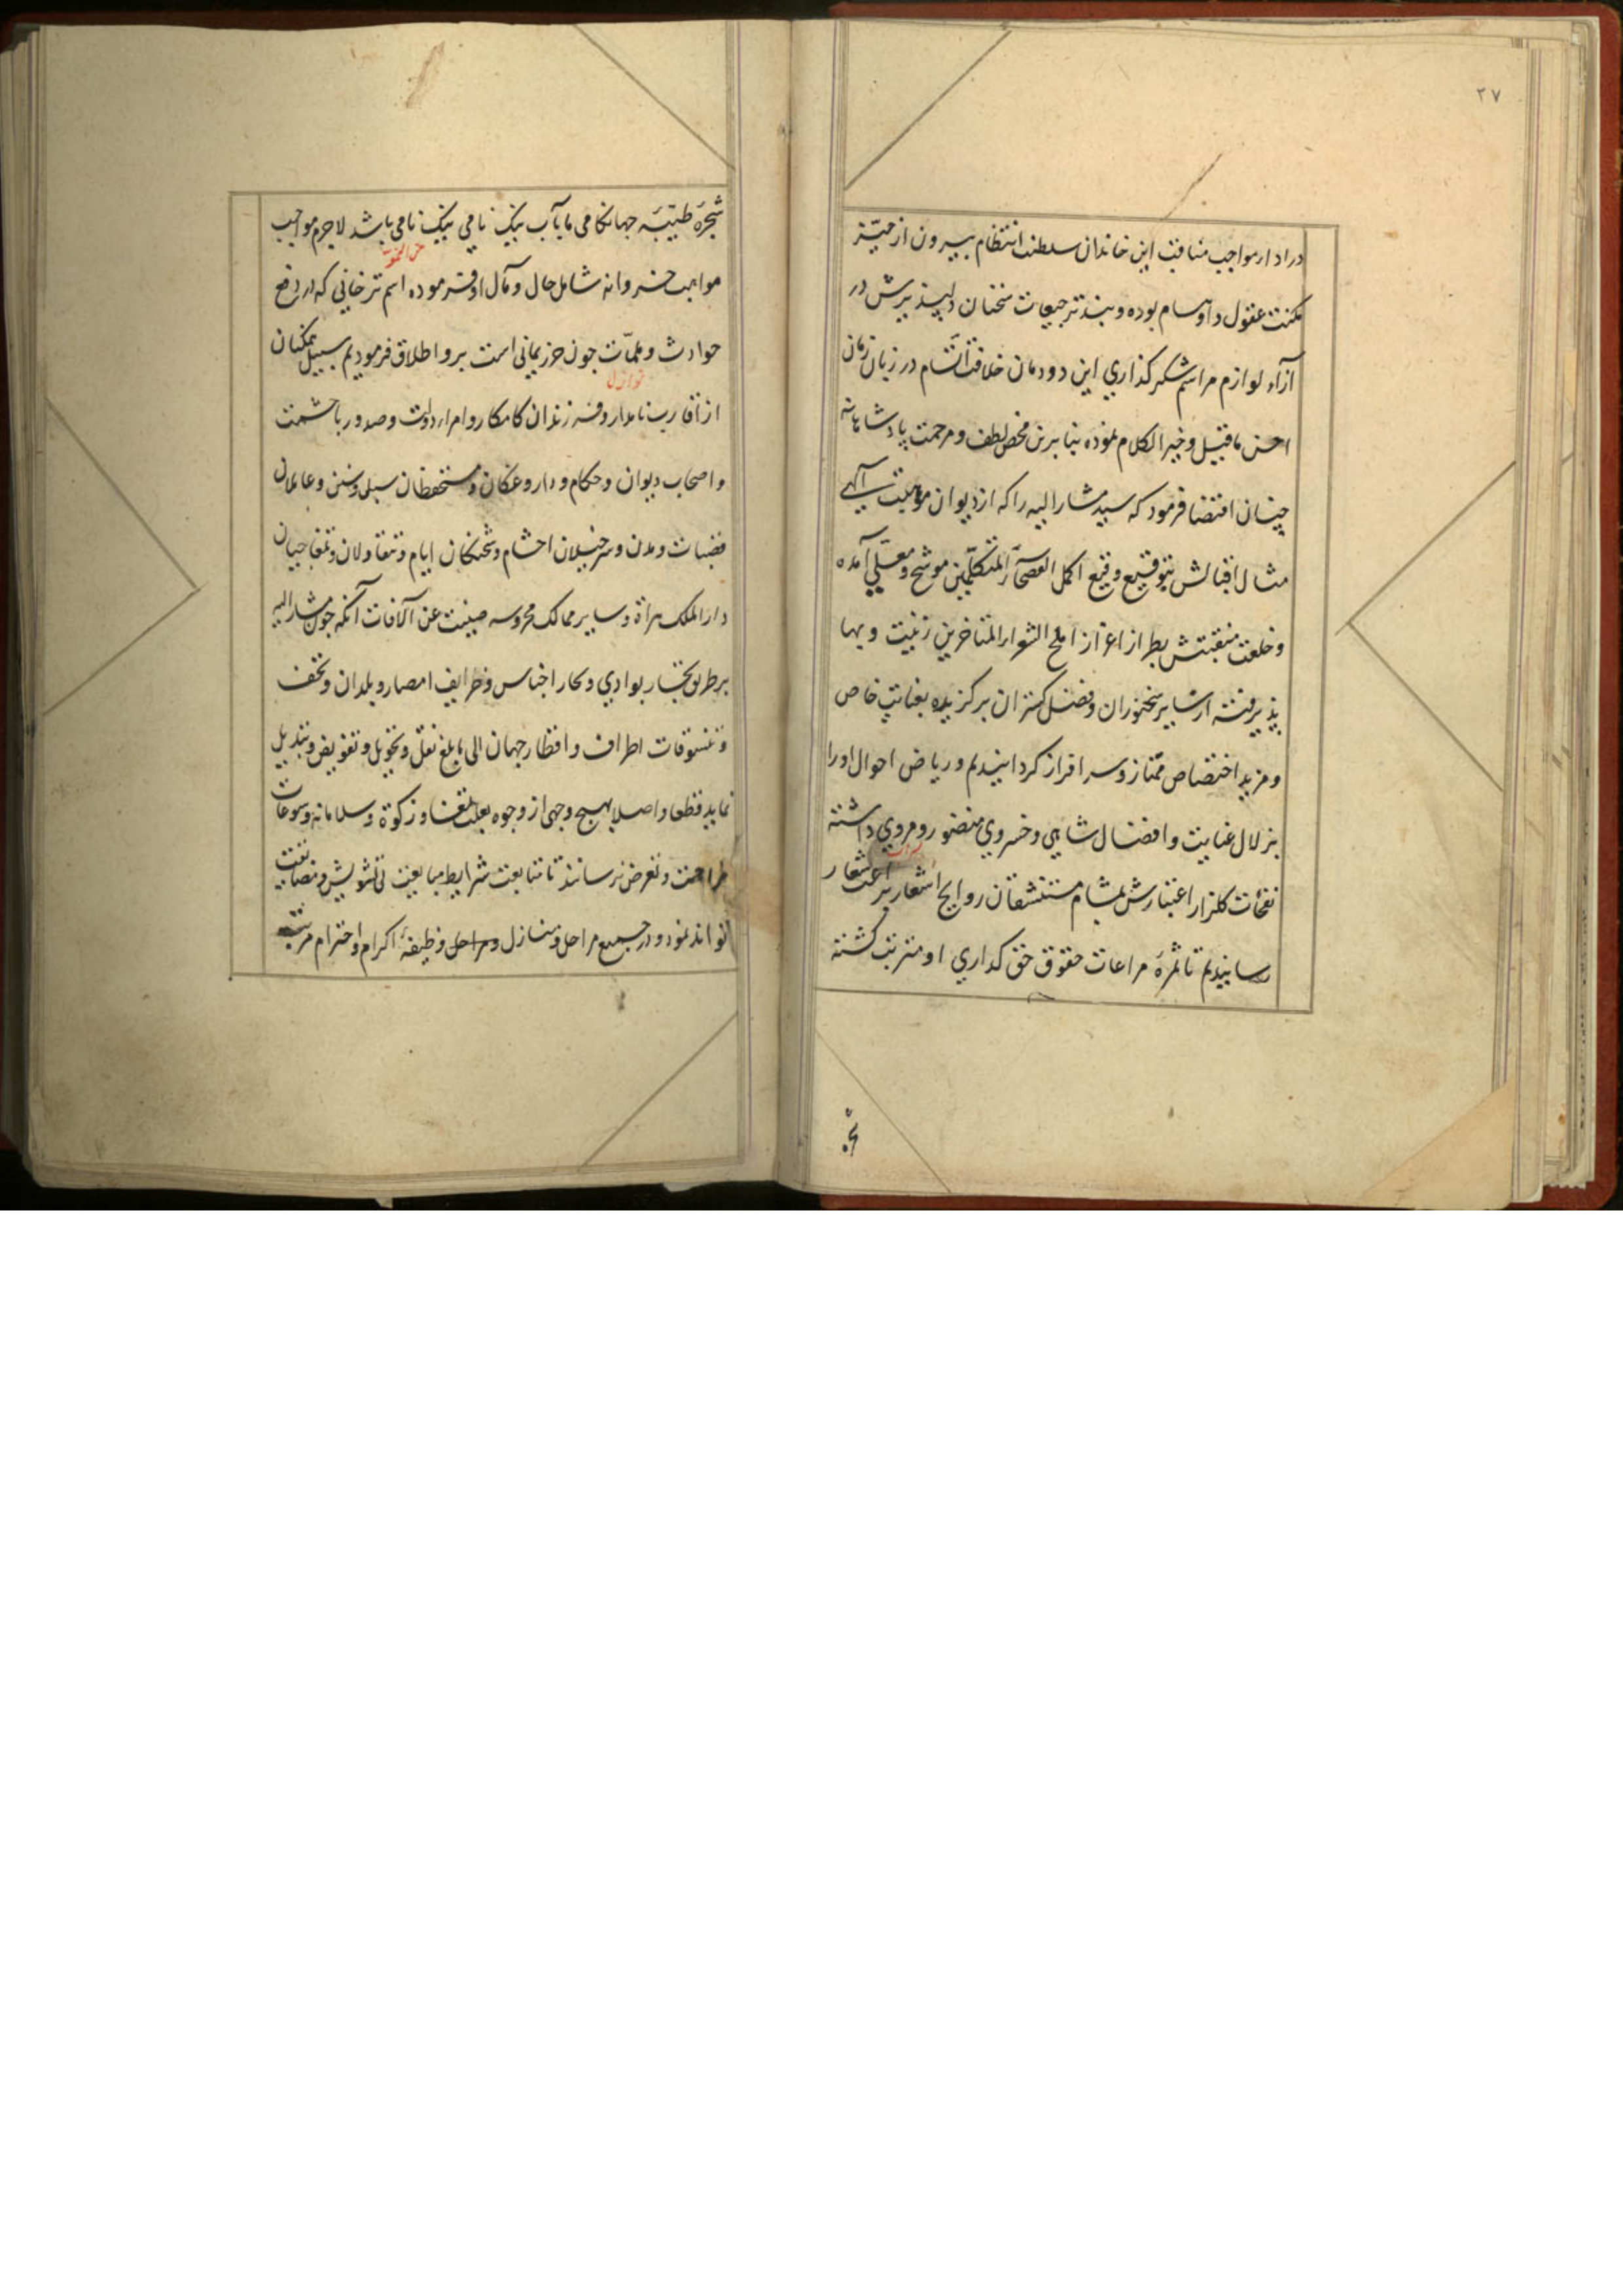 ٢٧
در ادار مواجب مناقب این خاندان سلطنت انتظام بیرون از حیّز
مکنت عقول و اوسام بوده و بند ترجیعات سخنان دلپذیرش در
ازاء لوازم مراسم شکر کذاری این دودمان خلافت اتّسام در زبان زمان
احسن ماقیل و خیر الکلام نموده بنابرین محض لطف و مرحمت پادشاهانه
چنان اقتضا فرمود که سید مشار الیه را که از دیوان موهبت الهی
مثال اقبالش بتوقیع وقیع اکمل الفصحآء المتکلّمین موشح و معلّی آمده
و خلعت منقبتش بطراز اعزاز املح الشعراء المتاخرین زینت و بها
پذیرفته از سایر سخنوران و فضل کستران برکزیده بعنایت خاص
و مزید اختصاص ممتاز و سرافراز کردانیدیم و ریاض احوال او را
بزلال عنایت و افضال شاهی و خسروی منضور و مروی داشته
نفحات کلزار اعتبارش بمشام مستنشقان روایح اشعار براعت شعار
رسانیدیم تا ثمرهٔ مراعات حقوق حق کداری او مترتب کشته
شجره
شجرهٔ طیّبهٔ جهانکامی مایآب نیک نامی نیک نامی باشد لاجرم مواجب
مواهب خسروانه شامل حال و مآل او فرموده اسم ترخانی که در دفع
حوادث و ملمّات چون حرز یمانی است برو اطلاق فرمودیم سبیل تمکنان
نوازل
از اقارب نامدار و فرزندان کامکار و امراء دولت و صدور با حشمت
و اصحاب دیوان و حکام و داروغکان و مستحفظان سبل و سنن و عاملان
قصبات و مدن و سرخیلان احشام و شحنکان ایام و تنقاولان و تمغاجیان
دار الملک هراة و سایر ممالک محروسه صینت عن الآفات آنکه چون مشار الیه
بر طریق تجار بوادی و بحار اجناس و ظرایف امصار و بلدان و تحف
و تنسوقات اطراف و اقطار جهان الی مابلغ نقل و تحویل و تفویض و تبدیل
نماید قطعا و اصلا بهیچ وجهی از وجوه بعلت تمغا و زکوة و سلامانه و سوغات
مزاحمت و تعرض نرسانند تا متابعت شرایط مبایعت بی تشویش و مضایقت
تواند نمود و در جمیع مراحل و منازل و مراحل وظیفهٔ اکرام و احترام مرتبه